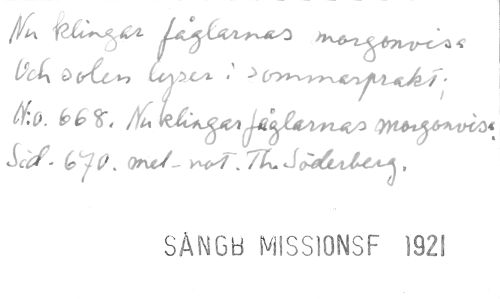 Nu klingar fåglarnas morgonvisa
Och solen lyser i sommarprakt;
N:o. 668. Nu klingar fåglarnas morgonvisa.
Sid. 670. mel-not. Th. Söderberg.
SÅNGB MISSIONSF 1921